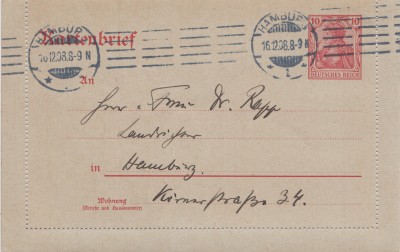 Kartenbrief
HAMBURG
16.12.08.8-9N
* 1 *
HAMBURG
16.12.08.8-9N
* 1 *
10 10
DEUTSCHES REICH
An
Herrn u. Frau Dr. Rapp
Landrichter
in Hamburg.
Wohnung
(Straße und Hausnummer)
Körnerstraße 34.